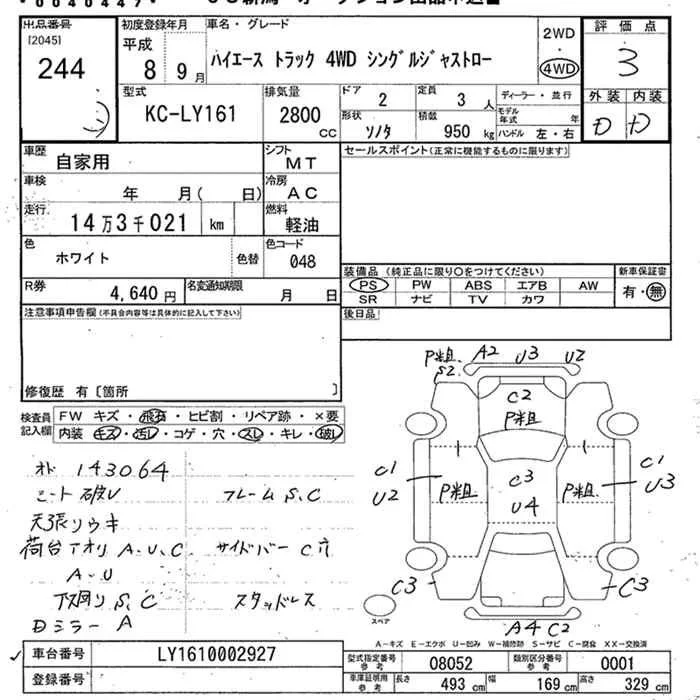 *0040447*
出品番号 [2045] 244
初度登録年月 平成 8 9月
車名・グレード
ハイエース トラック 4WD シングルジャストロー
2WD ・ 4WD
評価点 3
外装 内装
D D
型式 KC-LY161
排気量 2800 CC
ドア 2
定員 3 人
形状 ソノタ
積載 950 kg
ディーラー・並行
モデル年式 年
ハンドル 左・右
車歴 自家用
シフト MT
セールスポイント(正常に機能するものに限ります)
車検 年 月( 日)
冷房 AC
走行 14万3千021 km
燃料 軽油
色 ホワイト 色替
色コード 048
R券 4,640円
名変通知期限 月 日
装備品 (純正品に限り○をつけてください)
新車保証書
PS PW ABS エアB AW
SR ナビ TV カワ
有・無
注意事項申告欄(不具合内容等は具体的に記入して下さい)
後日品
修復歴 有〔箇所 〕
検査員記入欄
FW キズ・飛石・ヒビ割・リペア跡・×要
内装・キズ・汚レ・コゲ・穴・スレ・キレ・破レ
オド 143064
シート破レ フレーム S,C
天張りウキ
荷台アオリ A-U,C サイドバー C穴
A-U
下廻り S,C スタッドレス
Dミラー A
P粗 A2 U3 U2
S2
C2
P粗
C1 C3 C1
U2 P粗 U4 P粗 U3
C3 C3
スペア
A4 C2
A-キズ E-エクボ U-凹み W-補修跡 S-サビ C-腐食 XX-交換済
車台番号 LY1610002927
登録番号
型式指定番号 参考 08052
類別区分番号 参考 0001
車庫証明用 参考 長さ 493 cm 幅 169 cm 高さ 329 cm